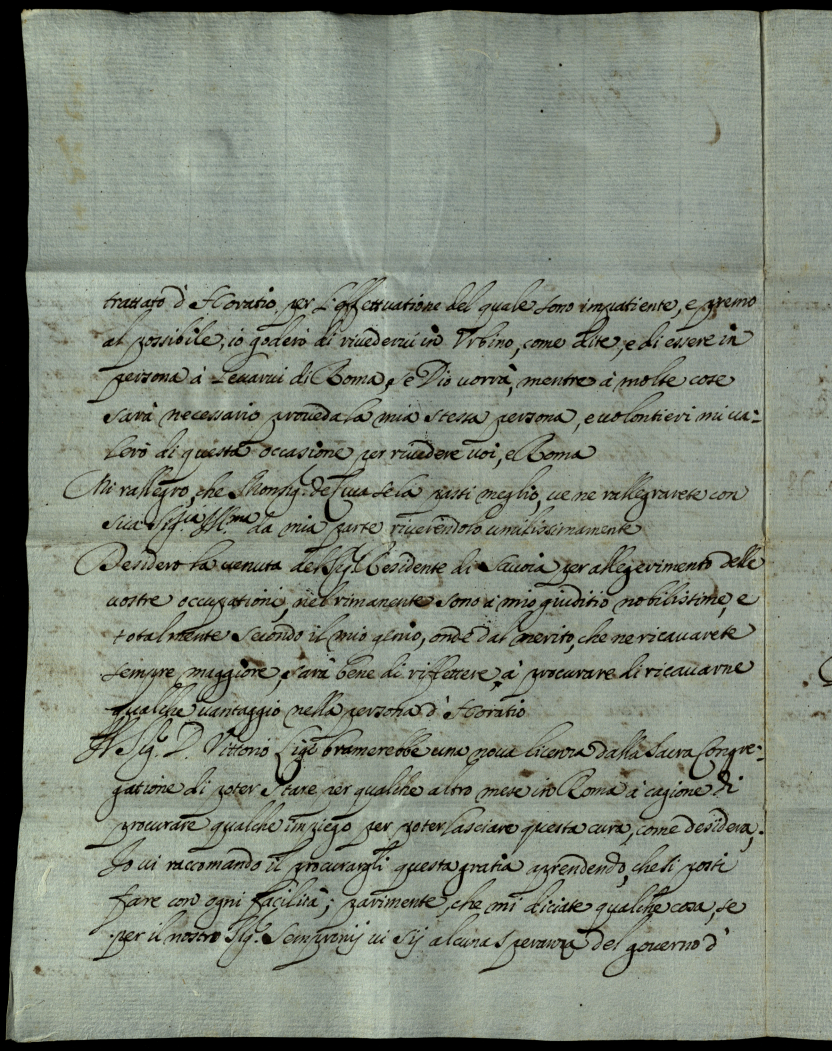 trattato d'Horatio per l'effettuatione del quale sono impatiente, e premo
al possibile; io goderò di rivedervi in Urbino, come dite, e di essere in
persona à levarvi di Roma, se Dio vorrà, mentre à molte cose
sarà necessario proveda la mia stessa persona, e volontieri mi va:
lerò di questa occasione per rivedere voi, e Roma
Mi rallegro, che Monsig.r de Luca se la passi meglio, ve ne rallegrarete con
sua Sig.ria Ill.ma da mia parte riverendolo umilissimamente
Desidero la venuta del Sig.r Residente di Savoia per allegerimento delle
vostre occupationi, nel rimanente sono à mio giuditio nobilissime, e
totalmente secondo il mio genio, onde dal merito, che ne ricavarete
sempre maggiore, sarà bene di riflettere, à procurare di ricavarne
qualche vantaggio nella persona d'Horatio
Il Sig.r D. Vittorio Ligi bramerebbe una nova licenza dalla Sacra Congre:
gatione di poter stare per qualche altro mese in Roma à cagione di
procurare qualche impiego per poter lasciare questa cura, come desidera,
Io vi raccomando il procurargli questa gratia aprendendo, che si possi
fare con ogni facilità; parimente, che mi diciate qualche cosa, se
per il nostro Sig.r Sempronij vi sij alcuna speranza del governo d'